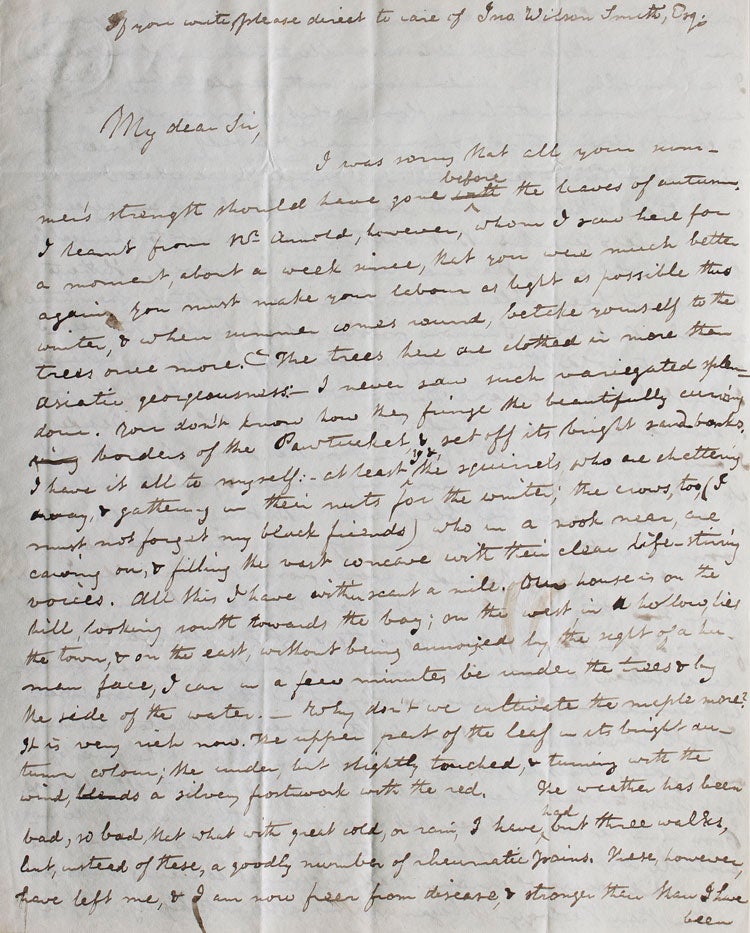 If you write, please direct to care of Jno Wilson Smith, Esq:
My dear Sir,
I was sorry that all your sum-
mer's strength should have gone before with the leaves of autumn.
I learnt from Mr. Arnold, however, whom I saw here for
a moment, about a week since, that you were much better
again. You must make your labour as light as possible this
winter, & when summer comes round, betake yourself to the
trees once more. The trees here are clothed in more than
asiatic georgeousness:- I never saw such variegated splen-
dour. You don't know how they fringe the beautifully curving
borders of the Pawtucket & set off its bright sand banks.
I have it all to myself:- at least, I & the squirrels, who are chattering
away, & gathering in their nuts for the winter; the crows, too, (I
must not forget my black friends) who in a nook near, are
cawing on, & filling the vast concave with their clear life-stirring
voices. All this I have within scant a mile. Our house is on the
hill, looking south towards the bay; on the west in a hollow, lies
the town, & on the east, without being annoyed by the sight of a hu-
man face, I can in a few minutes be under the trees & by
the side of the water. - Why don't we cultivate the maple more?
It is very rich now. The upper part of the leaf in its bright au-
tumn colour; the under, but slightly touched, & turning with the
wind, blends a silvery frostwork with the red. The weather has been
bad, so bad, that what with great cold, or rain, I have had but three walks,
but, instead of these, a goodly number of rheumatic pains. These, however,
have left me, & I am now freer from disease, & stronger than I have
been